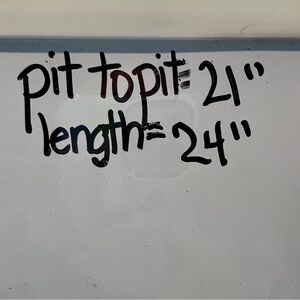 pit to pit= 21"
length= 24"